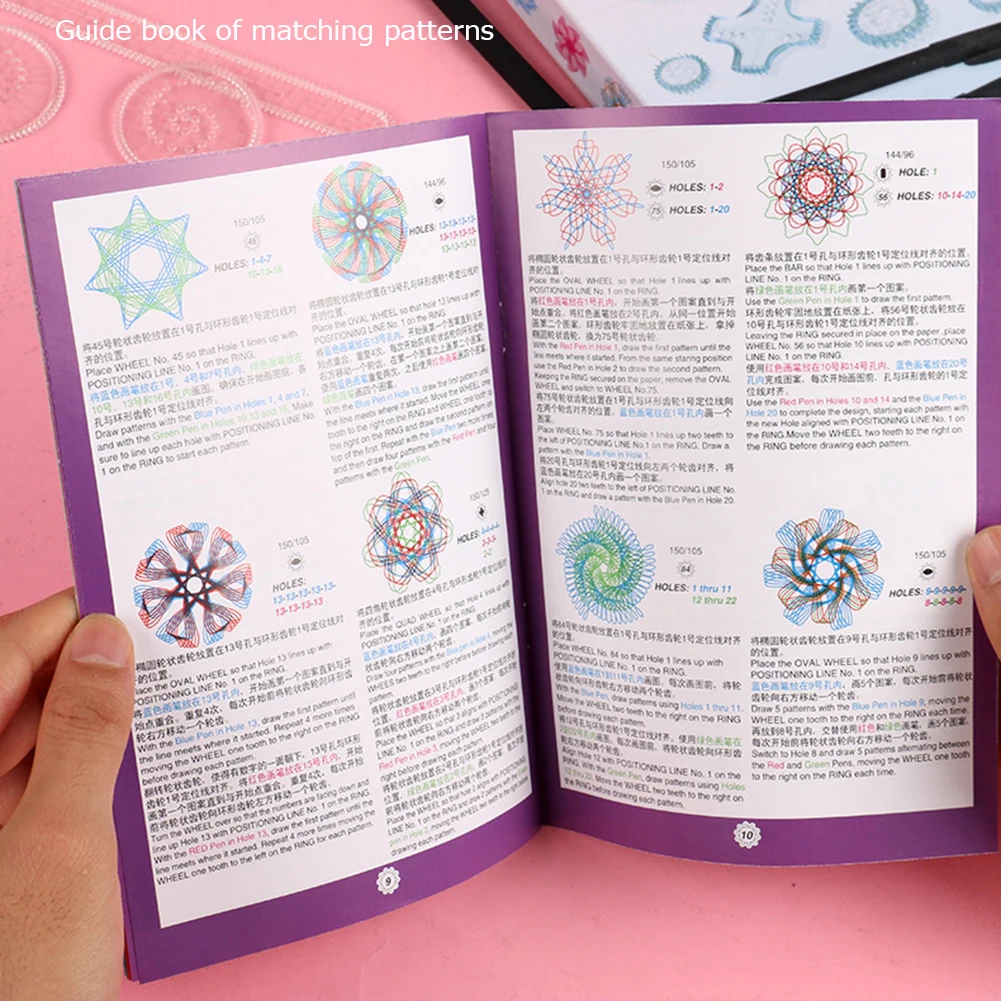 Guide book of matching patterns
150/105
45
HOLES: 1-4-7
10-13-16
将45号轮状齿轮放置在1号孔与环形齿轮1号定位线对
齐的位置。
Place WHEEL No. 45 so that Hole 1 lines up with
POSITIONING LINE No. 1 on the RING.
将蓝色画笔放在1号、4号和7号孔内、绿色画笔放在
10号、13号和16号孔内画图。确保在开始画图前、各
孔与环形齿轮1号定位线对齐。
Draw patterns with the Blue Pen in Holes 1, 4 and 7,
and with the Green Pen in Holes 10,13 and 16, Make
sure to line up each hole with POSITIONING LINE No.
1 on the RING to start each pattern.
144/96
HOLES: 13-13-13-13-
13-13-13-13-
13-13-13-13
将椭圆轮状齿轮放置在13号孔与环形齿轮1号定位线对
齐的位置。
Place the OVAL WHEEL so that hole 13 lines up with
POSITIONING LINE No. 1 on the RING.
With the Blue Pen in Hole 13, draw the first pattern until
the line meets where it started. Move the WHEEL one
tooth to the right on the RING and draw the second pattern on
top of the first. Repeat with the Blue Pen two more times
and then draw four patterns with the Red Pen and four
patterns with the Green Pen.
150/105
HOLES:
13-13-13-13-13-
13-13-13-13
椭圆轮状齿轮放置在13号孔与环形齿轮1号定位线
对齐的位置。
Place the OVAL WHEEL so that Hole 13 lines up with
POSITIONING LINE No. 1 on the RING.
将蓝色画笔放在13号孔内，开始画第一个图案直到与开
始点重合。重复4次，每次开始前将轮状齿轮向环形齿
轮右方移动一个轮齿。
With the Blue Pen in Hole 13, draw the first pattern until
the line meets where it started. Repeat 4 more times
moving the WHEEL one tooth to the right on the RING
before drawing each pattern.
翻转轮状齿轮，使得有数字的一面朝下，13号孔与环形
齿轮1号定位线对齐。将红色画笔放在13号孔内，开始
画第一个图案直到与开始点重合。重复4次，每次开始
前将轮状齿轮向环形齿轮左方移动一个轮齿。
Turn the WHEEL over so that the numbers are facing down and
line up Hole 13 with POSITIONING LINE No. 1 on the RING.
With the RED Pen in Hole 13, draw the first pattern until the
line meets where it started. Repeat 4 more times moving the
WHEEL one tooth to the left on the RING for each pattern.
150/105
HOLES: 4-4-4-4
3-3-3-
2-2
将四角轮状齿轮放置在4号孔与环形齿轮1号定位线对
齐的位置。
Place the QUAD WHEEL so that Hole 4 lines up with
POSITIONING LINE No. 1 on the RING.
9
150/105
HOLES: 1-2
75
HOLES: 1-20
将椭圆轮状齿轮放置在1号孔与环形齿轮1号定位线对
齐的位置。
Place the OVAL WHEEL so that Hole 1 lines up with
POSITIONING LINE No. 1 on the RING.
将红色画笔放在1号孔内，开始画第一个图案直到与开
始点重合。将红色画笔放在2号孔内，从同一位置开始
画第二个图案。环形齿轮牢固地放置在纸张上，拿掉
椭圆轮状齿轮，换为75号轮状齿轮。
With the Red Pen in Hole 1, draw the first pattern until the
line meets where it started. From the same staring position
use the Red Pen in Hole 2 to draw the second pattern.
Keeping the RING secured on the paper, remove the OVAL
WHEEL and switch to WHEEL No.75.
将75号轮状齿轮放置在1号孔与环形齿轮1号定位线向
左两个轮齿对齐的位置。蓝色画笔放在1号孔内画一个
图案。
Place WHEEL No. 75 so that Hole 1 lines up two teeth to
the left of POSITIONING LINE No.1 on the RING. Draw a
pattern with the Blue Pen in Hole 1.
将20号孔与环形齿轮1号定位线向左两个轮齿对齐。将
蓝色画笔放在20号孔内画一个图案。
Align hole 20 two teeth to the left of POSITIONING LINE No.
1 on the RING and draw a pattern with the Blue Pen in Hole 20.
144/96
HOLE: 1
56
HOLES: 10-14-20
将齿条放置在1号孔与环形齿轮1号定位线对齐的位置。
Place the BAR so that Hole 1 lines up with POSITIONING
LINE No. 1 on the RING.
将绿色画笔放在1号孔内画第一个图案。
Use the Green Pen in Hole 1 to draw the first pattern.
环形齿轮牢固地放置在纸张上、将56号轮状齿轮放在
10号孔与环形齿轮1号定位线对齐的位置。
Leaving the RING secured in place on the paper ,place
WHEEL No. 56 so that Hole 10 lines up with POSITIONING
LINE No.1 on the RING.
使用红色画笔放在10号和14号孔内、蓝色画笔放在20号
孔内完成图案，每次开始画图前、孔与环形齿轮1号的定
位线对齐。
Use the Red Pen in Holes 10 and 14 and the Blue Pen in
Hole 20 to complete the design, starting each pattern with
the new Hole aligned with POSITIONING LINE No. 1 on
the RING.Move the WHEEL two teeth to the right on
the RING before drawing each pattern.
150/105
84
HOLES: 1 thru 11
12 thru 22
将84号轮状齿轮放置在1号孔与环形齿轮1号定位线对
齐的位置。
Place WHEEL No. 84 so that Hole 1 lines up with
POSITIONING LINE No. 1 on the RING.
使用蓝色画笔在1到11号孔内画图、每次画图前、将轮
状齿轮向右方移动两个轮齿。
With the Blue Pen, draw patterns using Holes 1 thru 11.
Move the WHEEL two teeth to the right on the RING
before drawing each pattern.
Align Hole 12 with POSITIONING LINE No. 1 on the
RING. With the Green Pen, draw patterns using Holes
12 thru 22, Move the WHEEL two teeth to the right on
the RING before drawing each pattern.
150/105
HOLES: 9-9-9-9-9-
8-8-8-8-8
将椭圆轮状齿轮放置在9号孔与环形齿轮1号定位线对
齐的位置。
Place the OVAL WHEEL so that Hole 9 lines up with
POSITIONING LINE No. 1 on the RING.
蓝色画笔放在9号孔内，画5个图案、每次开始前将轮状
齿轮向右方移动一个轮齿。
Draw 5 patterns with the Blue Pen in Hole 9, moving the
WHEEL one tooth to the right on the RING each time.
再放到8号孔内、交替使用红色和绿色画笔、画5个图案、
每次开始前将轮状齿轮向右方移动一个轮齿。
Switch to Hole 8 and draw 5 patterns alternating between
the Red and Green Pens, moving the WHEEL one tooth
to the right on the RING each time.
10